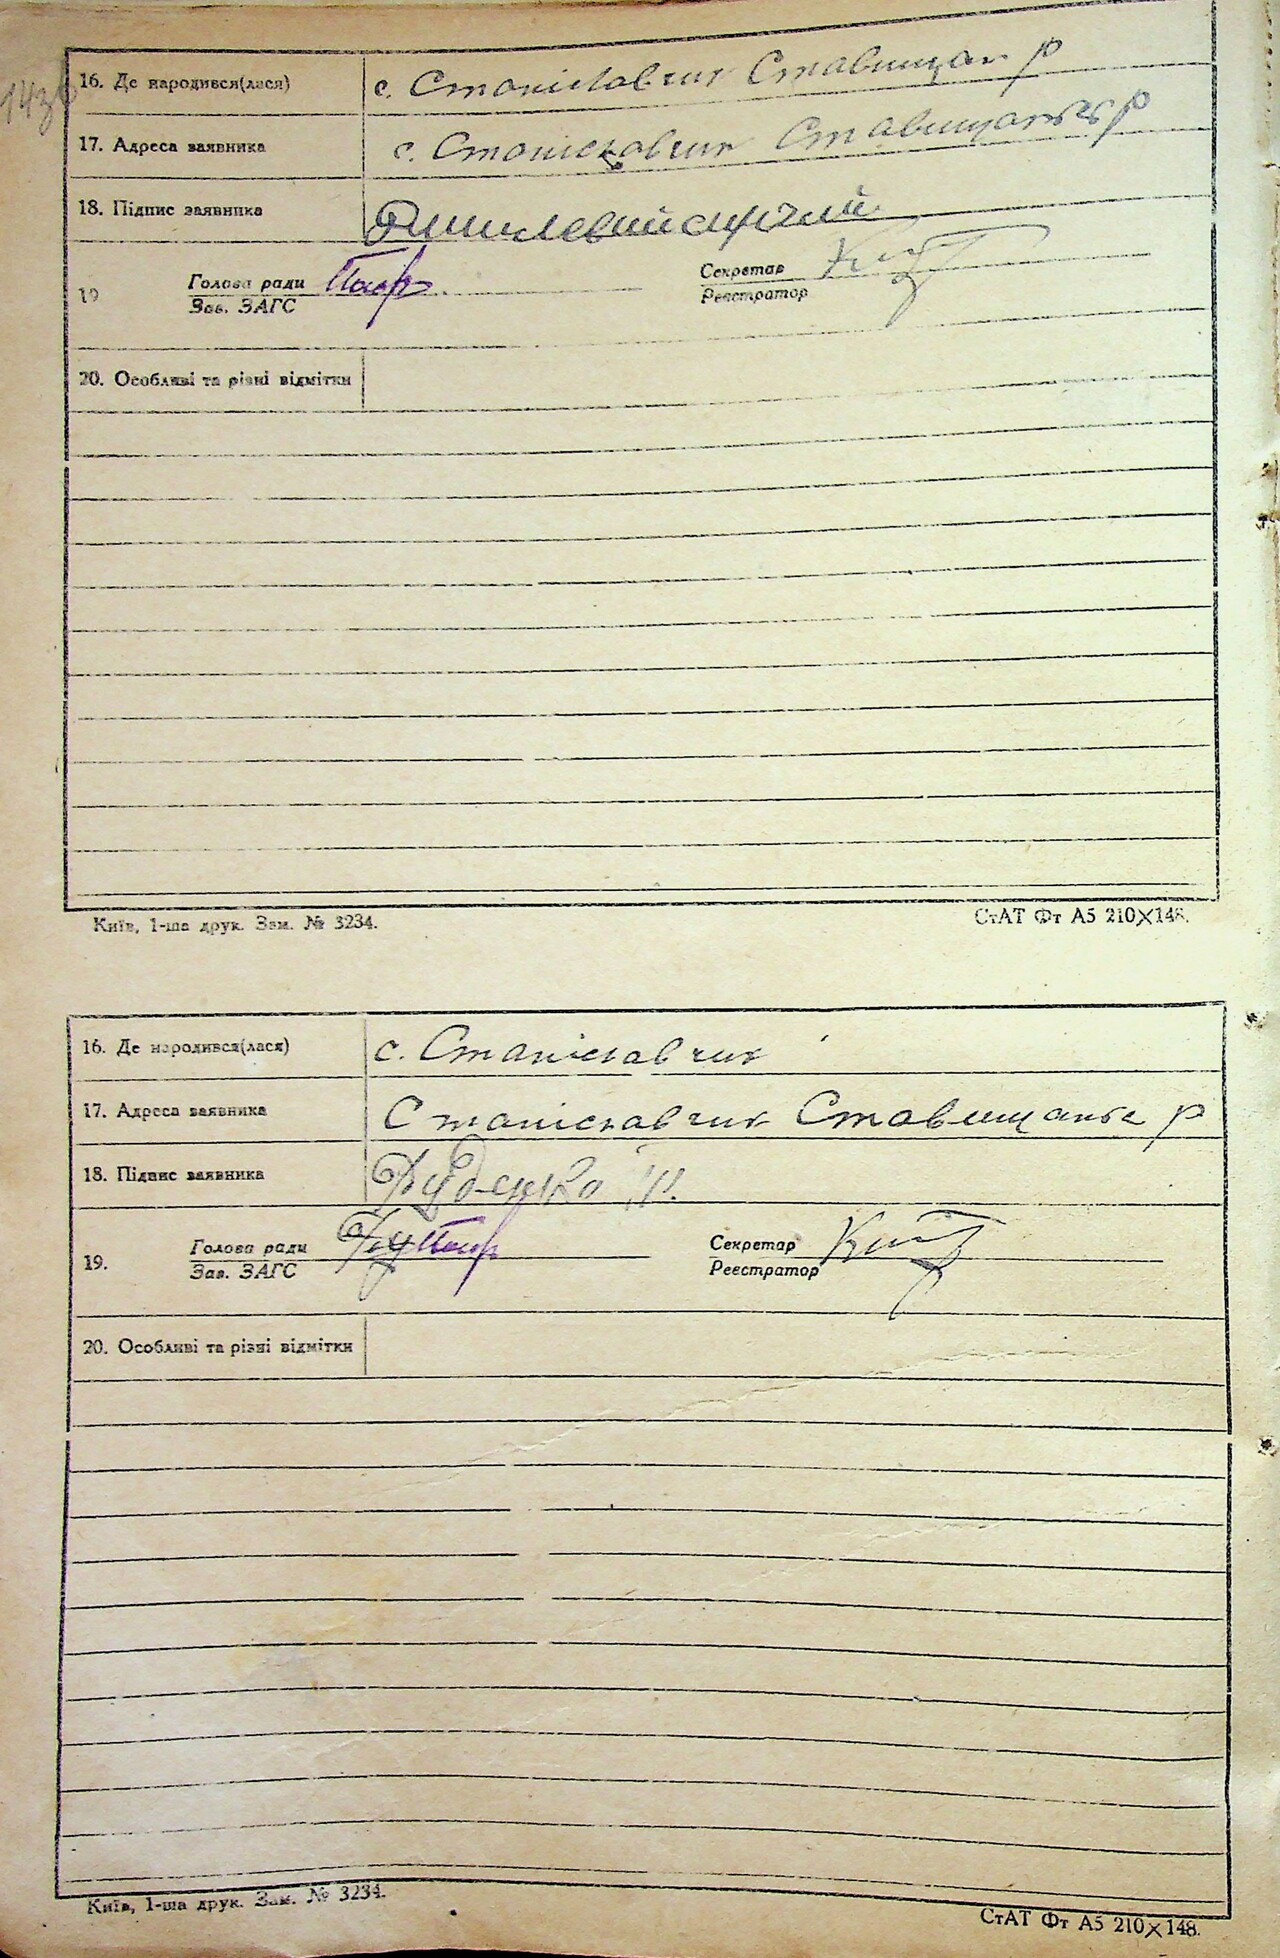 143
16. Де народився(лася) с. Станіславчик Ставищан р
17. Адреса заявника с. Станіславчик Ставищанськ р
18. Підпис заявника
Голова ради Секретар
19 Зав. ЗАГС Реєстратор
20. Особливі та різні відмітки
Київ, 1-ша друк. Зам. № 3234. СтАТ Фт А5 210×148.
16. Де народився(лася) с. Станіславчик
17. Адреса заявника Станіславчик Ставищанськ р
18. Підпис заявника Руденко
Голова ради Секретар
19. Зав. ЗАГС Реєстратор
20. Особливі та різні відмітки
Київ, 1-ша друк. Зам. № 3234. СтАТ Фт А5 210×148.